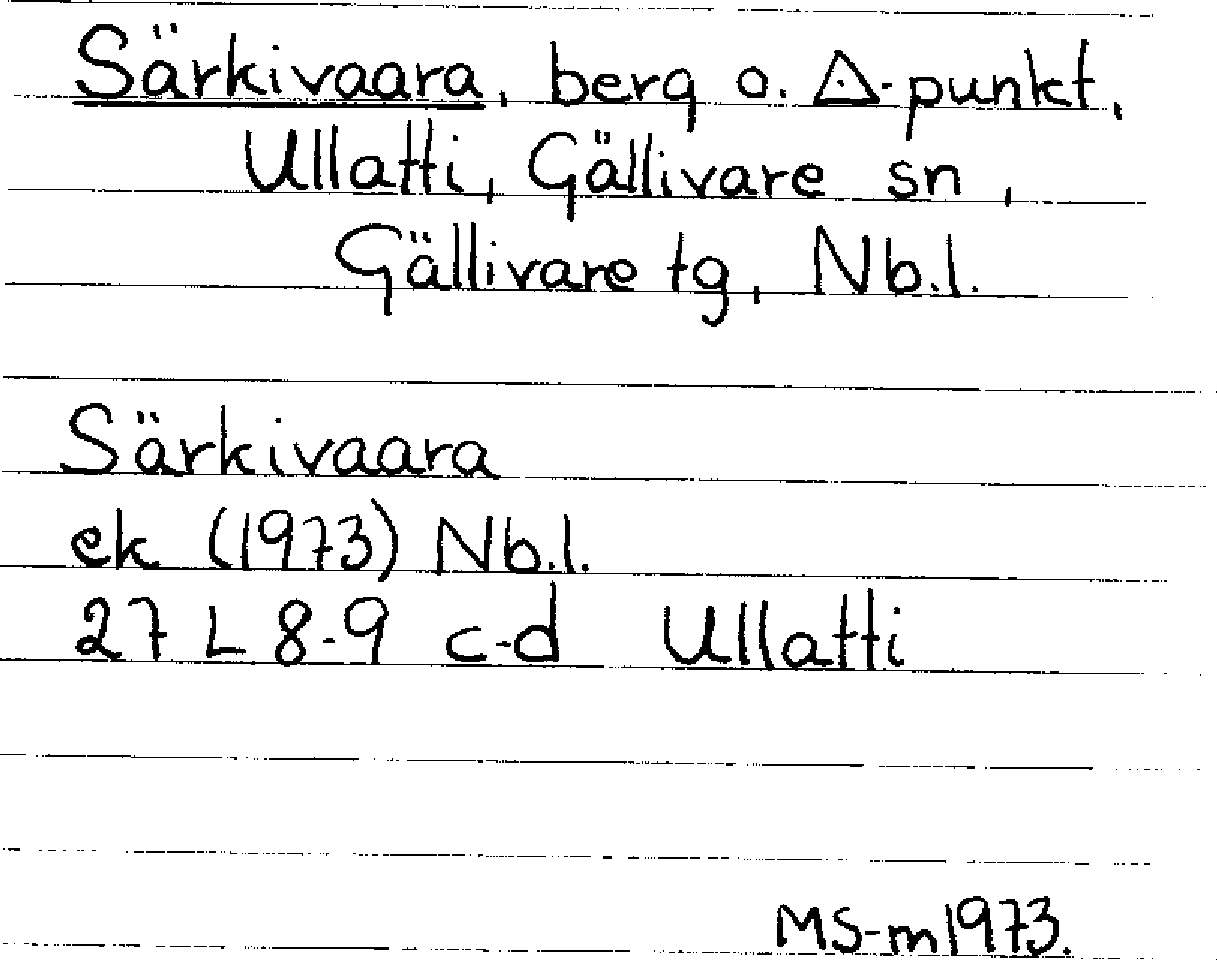 Särkivaara, berg o. △-punkt,
Ullatti, Gällivare sn,
Gällivare tg, Nb.l.
Särkivaara
ek (1973) Nb.l.
27 L 8-9 c-d Ullatti
MS-m 1973.